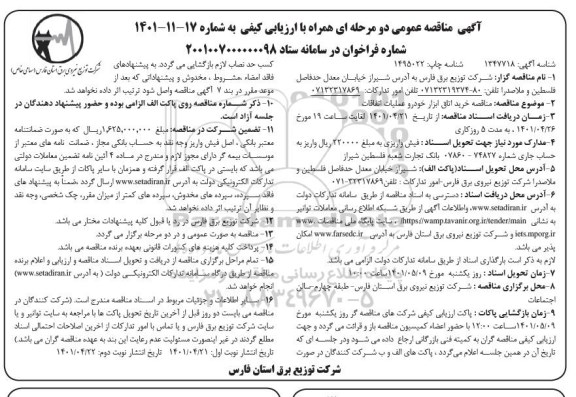 آگهی مناقصه عمومی دو مرحله ای همراه با ارزیابی کیفی به شماره ۱۷-۱۱-۱۴۰۱
شماره فراخوان در سامانه ستاد ۲۰۰۱۰۰۷۰۰۰۰۰۰۰۹۸
شرکت توزیع نیروی برق استان فارس (سهامی خاص)
شناسه آگهی: ۱۳۴۷۷۱۸ شناسه چاپ: ۱۴۹۵۰۲۲
۱- نام مناقصه گزار: شرکت توزیع برق فارس به آدرس شیراز خیابان معدل حدفاصل
فلسطین و ملاصدرا تلفن: ۸۰-۰۷۱۳۲۳۱۹۲۷۴ تلفن امور تدارکات: ۰۷۱۳۲۳۱۷۸۶۹
۲- موضوع مناقصه: مناقصه خرید اتاق ابزار خودرو عملیات اتفاقات
۳- زمان دریافت اسناد مناقصه: از تاریخ ۱۴۰۱/۰۴/۲۱ لغایت ساعت ۱۹ مورخ
۱۴۰۱/۰۴/۲۶ ، به مدت ۵ روزکاری
۴- مدارک مورد نیاز جهت تحویل اسناد: فیش واریزی به مبلغ ۲۲۰۰۰۰ ریال واریز به
حساب جاری شماره ۷۴۸۲۷ - ۰۷۸۶۰ بانک تجارت شعبه فلسطین شیراز
۵- آدرس محل تحویل اسناد(پاکت الف): شیراز خیابان معدل حدفاصل فلسطین و
ملاصدرا شرکت توزیع نیروی برق فارس-امور تدارکات : تلفن۳۲۳۱۷۸۶۹-۰۷۱
۶- آدرس محل دریافت اسناد : دسترسی به اسناد مناقصه از طریق سامانه تدارکات دولت
به آدرس www.setadiran.ir، واطلاعات آگهی از طریق شبکه اطلاع رسانی معاملات توانیر
به نشانی https://wamp.tavanir.org.ir/tender/main، سایت پایگاه ملی مناقصات www.
iets.mporg.ir و شرکت توزیع نیروی برق استان فارس به آدرس www.farsedc.ir امکان
پذیر می باشد.
لازم به ذکر است بارگذاری اسناد از طریق سامانه تدارکات دولت الزامی می باشد
۷- زمان تحویل اسناد : روز یکشنبه مورخ ۱۴۰۱/۰۵/۰۹ ساعت ۱۰:۰۰
۸- محل برگزاری مناقصه : شرکت توزیع نیروی برق استان فارس- طبقه چهارم-سالن
اجتماعات
۹- زمان بازگشایی پاکات : پاکت ارزیابی کیفی شرکت های مناقصه گر روز یکشنبه مورخ
۱۴۰۱/۰۵/۰۹ ساعت ۱۲:۰۰ با حضور اعضاء کمیسیون مناقصه باز و قرائت می گردد و جهت
ارزیابی کیفی مناقصه گران به کمیته فنی بازرگانی ارجاع داده می شود ودر جلسه ای که
تاریخ آن در همین جلسه اعلام می‌گردد ، پاکت های الف و ب شرکت کنندگان در صورت
کسب حد نصاب لازم بازگشایی می گردد. به پیشنهادهای
فاقد امضاء ،مشروط ، مخدوش و پیشنهاداتی که بعد از
موعد مقرر در بند ۷ آگهی مناقصه واصل شود ترتیب اثر داده نخواهد شد.
۱۰- ذکر شماره مناقصه روی پاکت الف الزامی بوده و حضور پیشنهاد دهندگان در
جلسه آزاد است.
۱۱- تضمین شرکت در مناقصه: مبلغ ۱,۶۲۵,۰۰۰,۰۰۰ریال که به صورت ضمانتنامه
معتبر بانکی ، اصل فیش واریز وجه نقد به حساب بانکی مجاز ، ضمانت نامه های معتبر از
موسسات بیمه گر دارای مجوز لازم و مندرج در ماده ۴ آئین نامه تضمین معاملات دولتی
می باشد که بایستی در پاکت الف قرار گرفته و همزمان با سایر پاکات از طریق سایت سامانه
تدارکات الکترونیکی دولت به آدرس www.setadiran.ir ارسال گردد ،ضمناً به پیشنهاد های
فاقد سپرده، سپرده های مخدوش، سپرده های کمتر از میزان مقرر، چک شخصی، وجه نقد
و نظایر آن ترتیب اثر داده نخواهد شد.
۱۲- شرکت توزیع برق فارس در رد یا قبول کلیه پیشنهادات مختار می باشد.
۱۳- مناقصه به صورت عمومی و در دو مرحله برگزار می گردد.
۱۴- پرداخت کلیه هزینه های کسورات قانونی بعهده برنده مناقصه می باشد.
۱۵- تمام مراحل برگزاری مناقصه از دریافت و تحویل اسناد مناقصه و ارزیابی و اعلام برنده
مناقصه از طریق درگاه سامانه تدارکات الکترونیکی دولت ( به آدرس www.setadiran.ir)
انجام خواهد شد.
۱۶- سایر اطلاعات و جزئیات مربوط در اسناد مناقصه مندرج است. (شرکت کنندگان در
مناقصه می بایست دو روز قبل از آخرین تاریخ تحویل پاکت ها با مراجعه به سایت توانیر و یا
سایت شرکت توزیع برق فارس و یا تماس با امور تدارکات از آخرین اصلاحات احتمالی اسناد
مطلع گردند در غیر اینصورت مسئولیت عدم رعایت این بند به عهده مناقصه گران می باشد.)
تاریخ انتشار نوبت اول: ۱۴۰۱/۰۴/۲۱ تاریخ انتشار نوبت دوم: ۱۴۰۱/۰۴/۲۲
شرکت توزیع برق استان فارس